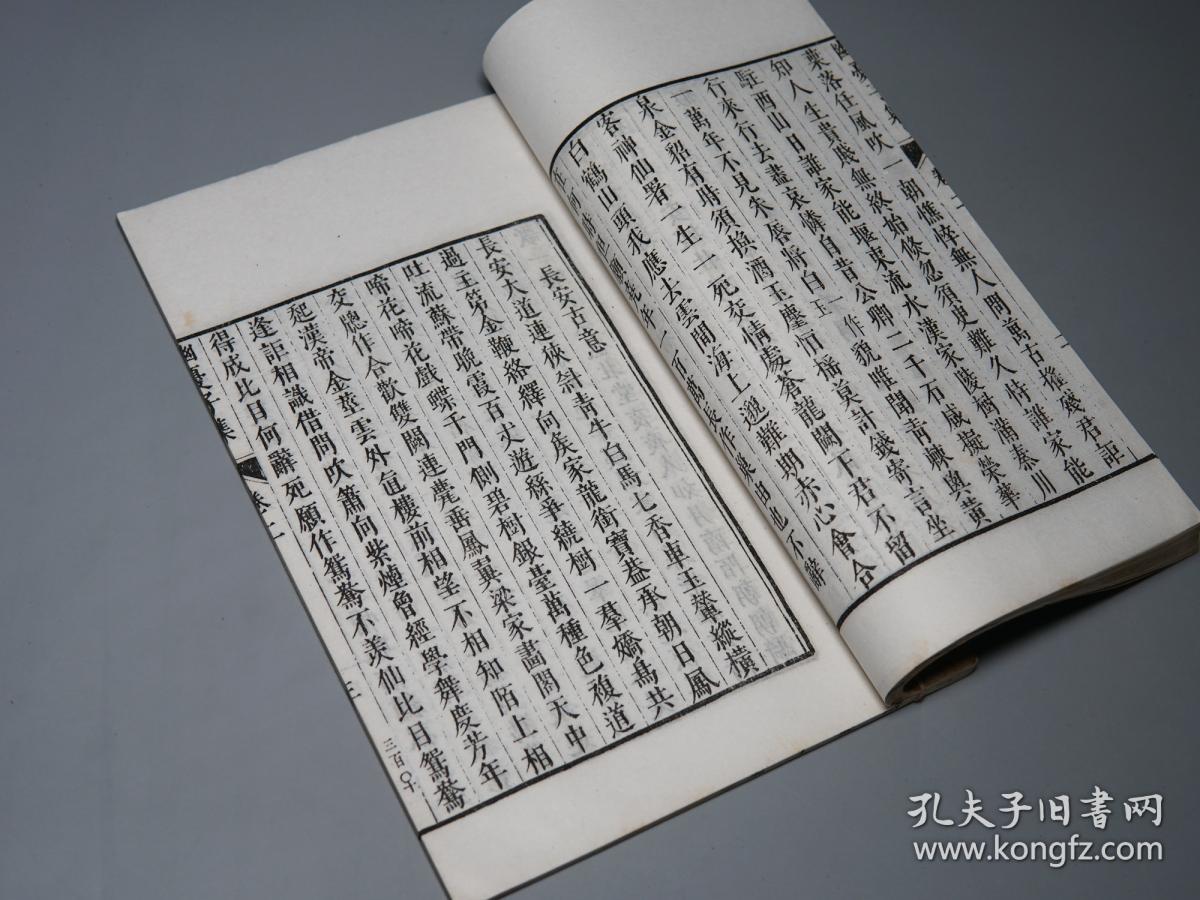 葉落任風吹一朝憔悴無人問萬古摧殘君詎
知人生貴賤無終始倐忽須臾難久恃誰家能
駐西山日誰家能堰東流水漢家陵樹滿秦川
行來行去盡哀憐自昔公卿二千石咸擬榮華
一萬年不見朱唇將白玉一作貌唯聞青棘與黃
泉金貂有時須換酒玉麈恒搖莫計錢寄言坐
客神仙署一生一死交情處蒼龍闕下君不留
白鶴山頭我應去雲間海上邈難期赤心會合
在何時但願堯年一百萬長作巢由也不辭
長安古意
長安大道連狹斜青牛白馬七香車玉輦縱橫
過主第金鞭絡繹向矦家龍銜寶葢承朝日鳳
吐流蘇帶晚霞百丈遊絲爭繞樹一羣嬌鳥共
啼花啼花戲蝶千門側碧樹銀臺萬種色複道
交牕作合歡雙闕連甍垂鳳翼梁家畵閣天中
起漢帝金莖雲外直樓前相望不相知陌上相
逢詎相識借問吹簫向紫煙曾經學舞度芳年
得成比目何辭死願作鴛鴦不羨仙比目鴛鴦
幽憂子集
卷二
三百〇十
孔夫子旧書网
www.kongfz.com